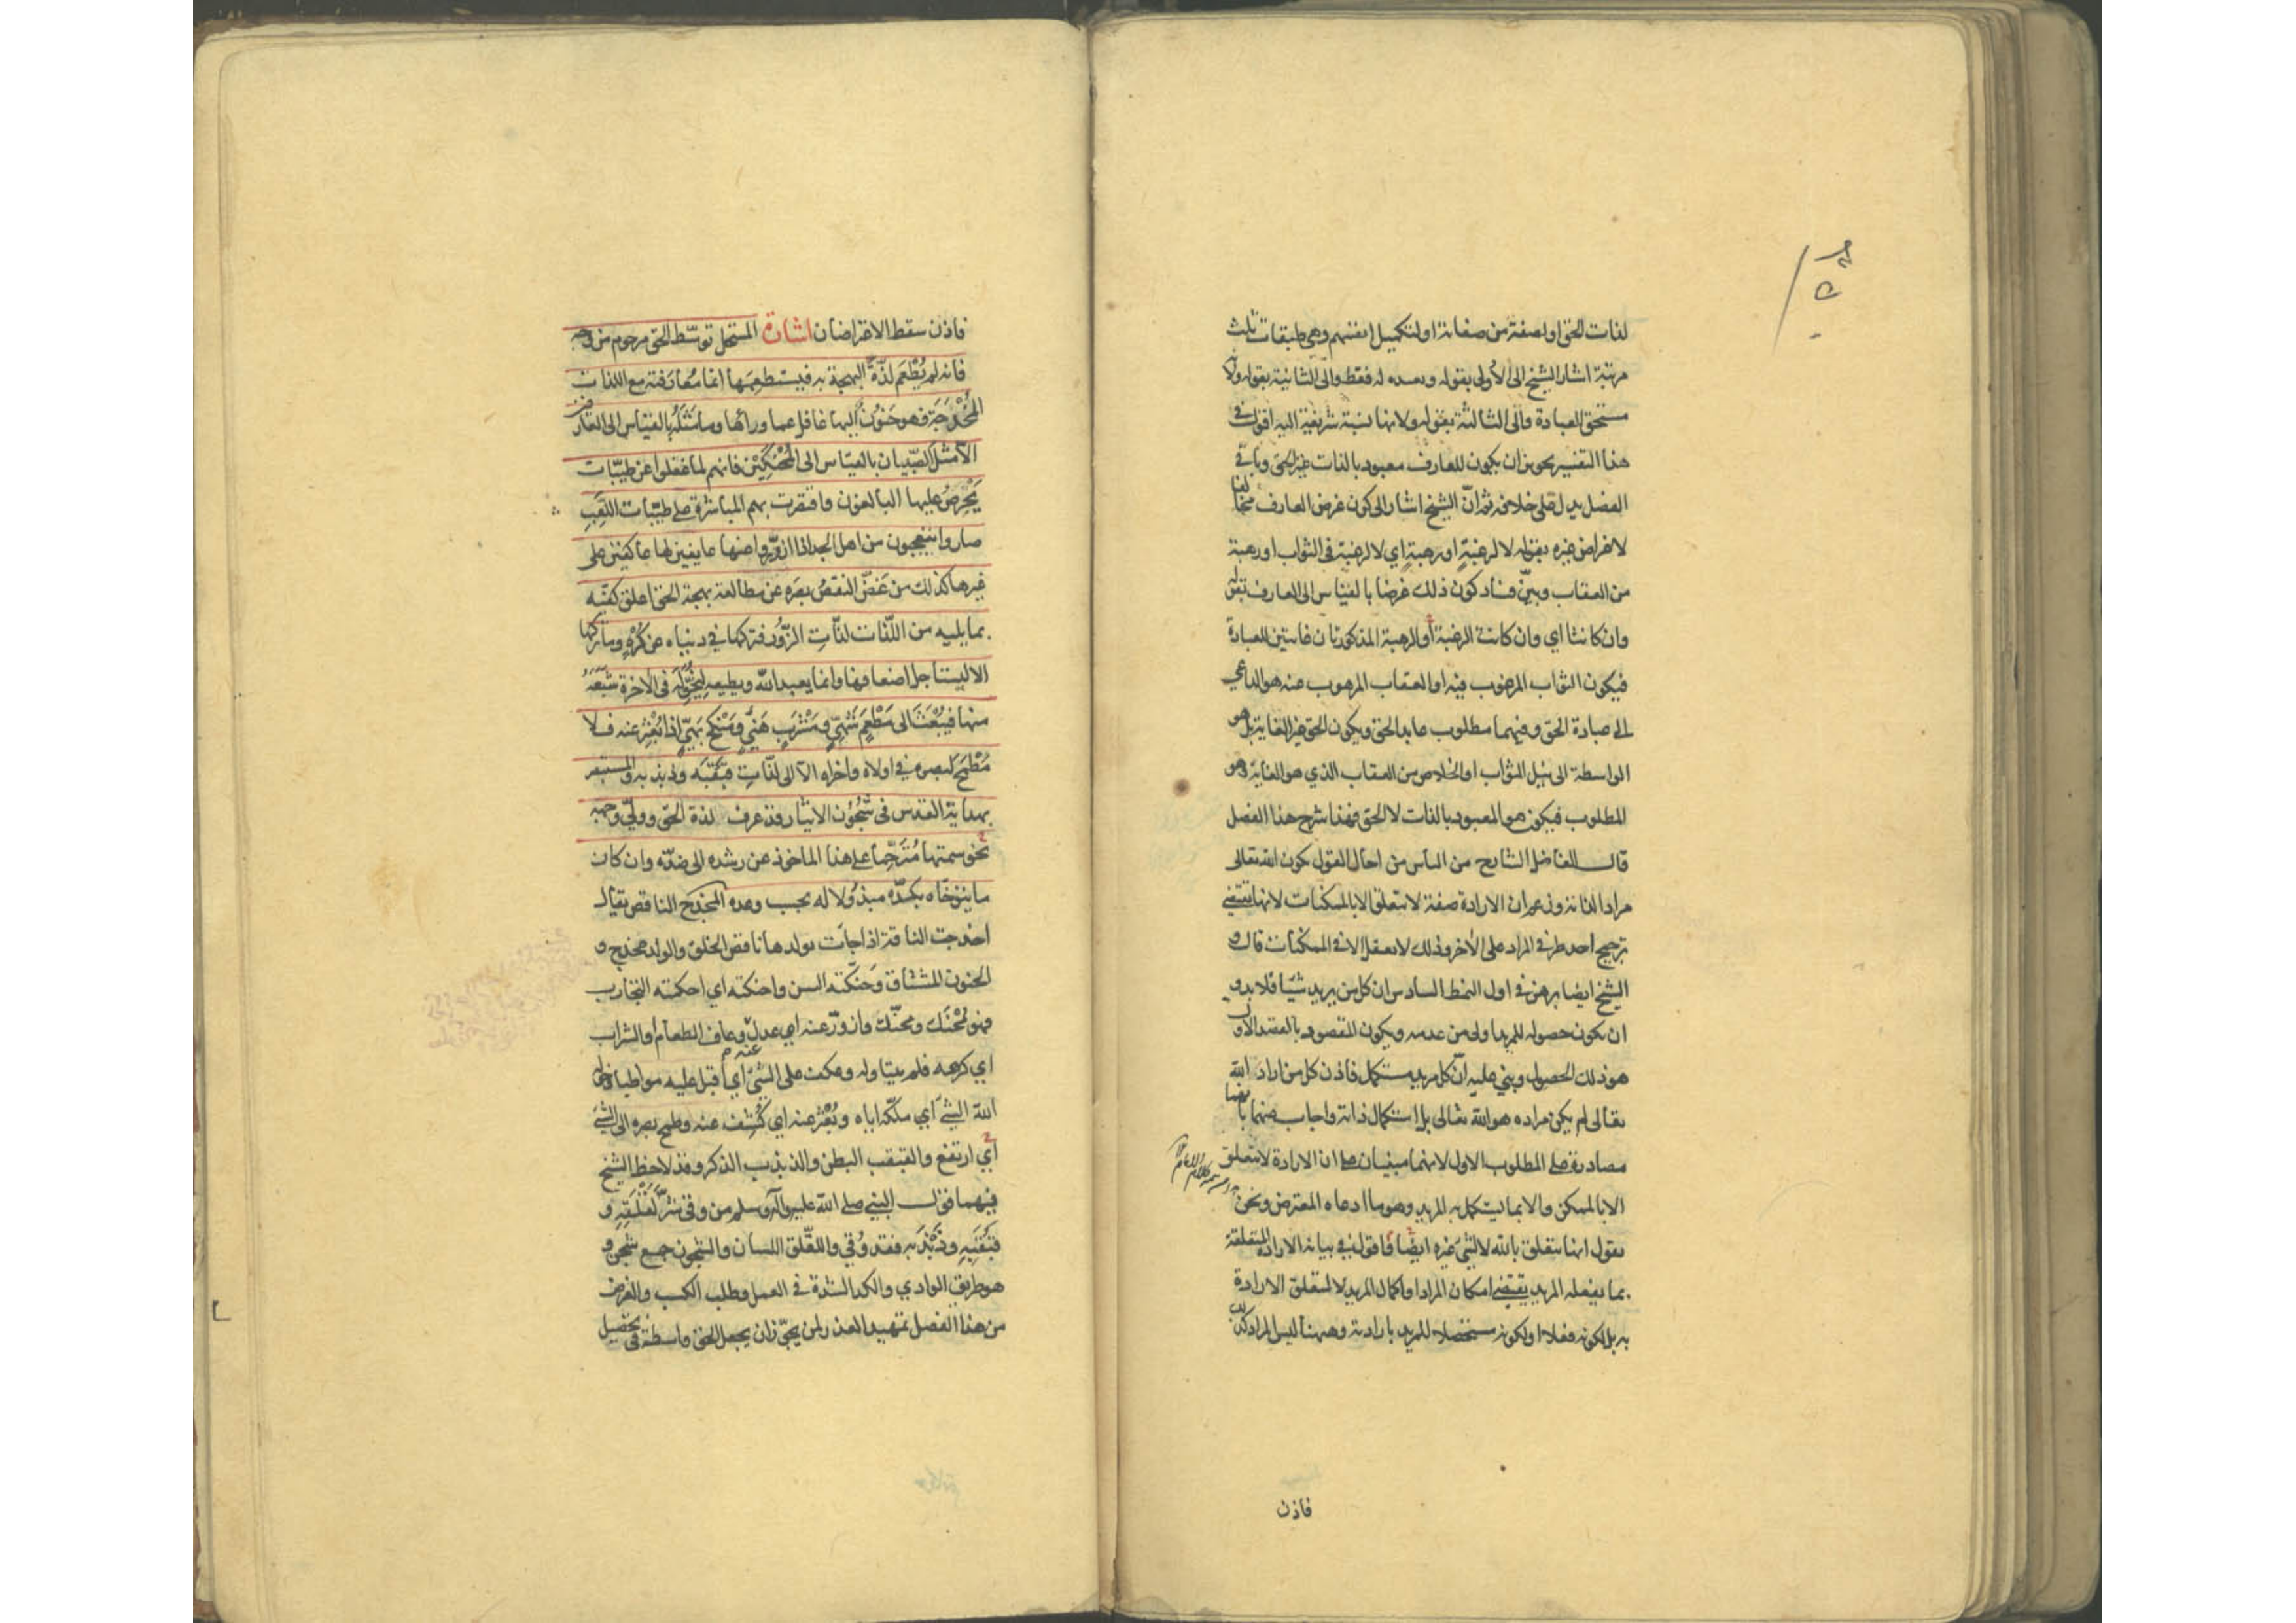 لذات الحق او لصفة من صفاته او لتكميل انفسهم وهي طبقات ثلث
مرتبة اشار الشيخ الى الاولى بقوله وتعبده له فقط والى الثانية بقوله ولانه
مستحق للعبادة والى الثالثة بقوله ولانها نسبة شريفة اليه اقول في
هذا التفسير تجويز ان يكون للعارف معبود بالذات غير الحق وباقي
الفصل يدل على خلافه ثم انّ الشيخ اشار الى كون غرض العارف مخالفا
لاغراض غيره بقوله لا لرغبةٍ او رهبةٍ اي لا لرغبة في الثواب او رهبة
من العقاب وبيّن فساد كون ذلك غرضا بالقياس الى العارف بقوله
وان كانتا اي وان كانت الرغبة أو الرهبة المذكورتان غايتين للعبادة
فيكون الثواب المرغوب فيه او العقاب المرهوب عنه هو الداعي
الى عبادة الحق وفيهما مطلوب عابد الحق ويكون الحق غير الغاية بل هو
الواسطة الى نيل الثواب او الخلاص من العقاب الذي هو الغاية وهو
المطلوب فيكون هو المعبود بالذات لا الحق فهذا شرح هذا الفصل
قال الفاضل الشارح من الناس من احال القول بكون الله تعالى
مرادا لذاته وزعم ان الارادة صفة لا تتعلق الا بالممكنات لانها تقتضي
ترجيح احد طرفي المراد على الآخر وذلك لا يعقل الا في الممكنات قال و
الشيخ ايضا برهن في اول النمط السادس ان كل من يريد شيئا فلا بد و
ان يكون حصوله للمريد اولى من عدمه ويكون المقصود بالقصد الاول
هو ذلك الحصول وبني عليه انّ كل مريد مستكمل فاذن كل من اراد الله
تعالى لم يكن مراده هو الله تعالى بل استكمال ذاته واجاب عنهما بانهما
مصادرة على المطلوب الاول لانهما مبنيان على ان الارادة لا تتعلق
الا بالممكن والا بما يستكمل به المريد وهو ما ادعاه المعترض ونحن
نقول انها تتعلق بالله لا لشيء غيره ايضا فاقول في بيانه الارادة المتعلقة
بما يفعله المريد يقتضي امكان المراد او اكمال المريد لا لتعلق الارادة
به بل لكونه فعلا او لكونه مستحصلا للمريد بارادته وههنا ليس المراد كذلك
فاذن
فاذن سقط الاعتراضان اشارة المستحل توسّط الحق مرحوم من وجه
فانه لم يُطْعَم لذّة البهجة به فيستطعِمَها انما مُعارَفته مع اللذات
المُخْدَجَة فهو حَنُونٌ اليها غافل عما وراءها وما مَثَلُه بالقياس الى العارفين
الا مَثَل الصّبيان بالقياس الى المُحْنَكِيْن فانهم لما غفلوا عن طيّبات
يَحْرِصُ عليها البالغون واقتصرت بهم المباشرة على طيّبات اللَّعِب
صاروا يتعجبون من اهل الجد اذا ازورّوا عنها عايفين لها عاكفين على
غيرها كذلك من غَضّ النقصُ بصَره عن مطالعة بهجة الحق اعلق كفّيه
بما يليه من اللّذات لذّاتِ الزّور فتركها في دنياه عن كُرْهٍ وما تركها
الا ليستاجل اضعافها وانما يعبد الله ويطيعه ليُخوِّلَه في الآخرة شَبْعَهُ
منها فيُبْعَثَ الى مَطْعَمٍ شَهِيّ ومَشْرَبٍ هَنِيّ ومَنْكَحٍ بَهِيّ اذا بُعْثِرَ عنه فلا
مُطْمَح لبصره في اولاه واخراه الّا الى لذّاتِ قَبْقَبه وذبذبه والمستبصر
بهداية القدس في شُجُون الايثار قد عرف لذة الحق وولّى وجهه
نحو سمتها مُتَرحّما على هذا الماخوذ عن رشده الى ضدّه وان كان
ما يتوخّاه بكدّه مبذولا له بحسب وعده المخدج الناقص يقال
اخدجت الناقة اذا جاءت بولدها ناقص الخلق والولد مخدج و
الحنون المشتاق وحَنّكته السن واحنكته اي احكمته التجارب
فهو مُحْنَك ومحنّك وازورّ عنه اي عدل وعاف الطعام والشراب
اي كرهه فلم يتناوله وعكف على الشيء اي اقبل عليه مواظبا وخوله
الله الشيء اي ملّكه اياه وبُعْثِر عنه اي كُشِف عنه وطمح بصره الى الشيء
اي ارتفع والقبقب البطن والذبذب الذكر وقد لاحظ الشيخ
فيهما قول النبي صلى الله عليه وآله وسلم من وقي شَرَّ لَقْلَقِه و
قَبْقَبِه وذَبْذَبِه فقد وُقي واللقلق اللسان والشجون جمع شجن و
هو طريق الوادي والكد الشدة في العمل وطلب الكسب والغرض
من هذا الفصل تمهيد العذر لمن يجوّز ان يجعل الحق واسطة في تحصيل